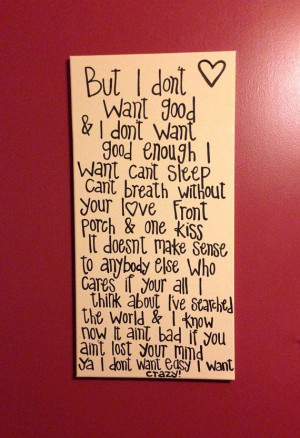 But I don't
Want good
& I dont Want
good enough I
Want cant sleep
Cant breath without
your love Front
Porch & one kiss
It doesnt make sense
to anybody else Who
Cares if your all I
think about I've searched
the World & I know
now It aint bad if you
aint lost your mind
Ya I dont want easy I want
crazy!